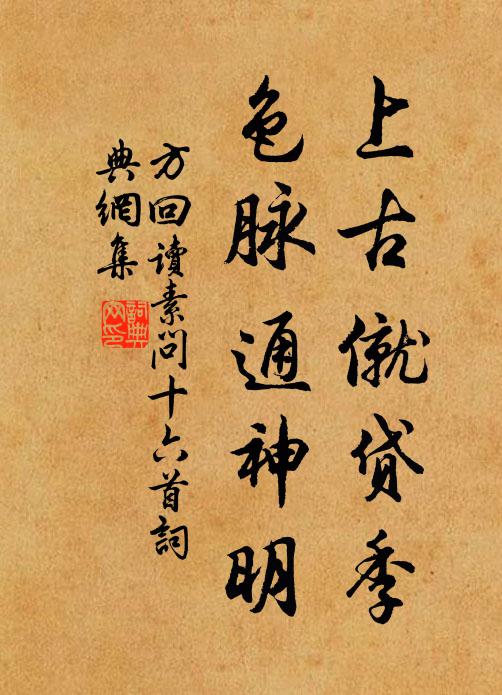 上古僦贷季
色脉通神明
方回讀素問十六首詞
典網集
詞典
网印